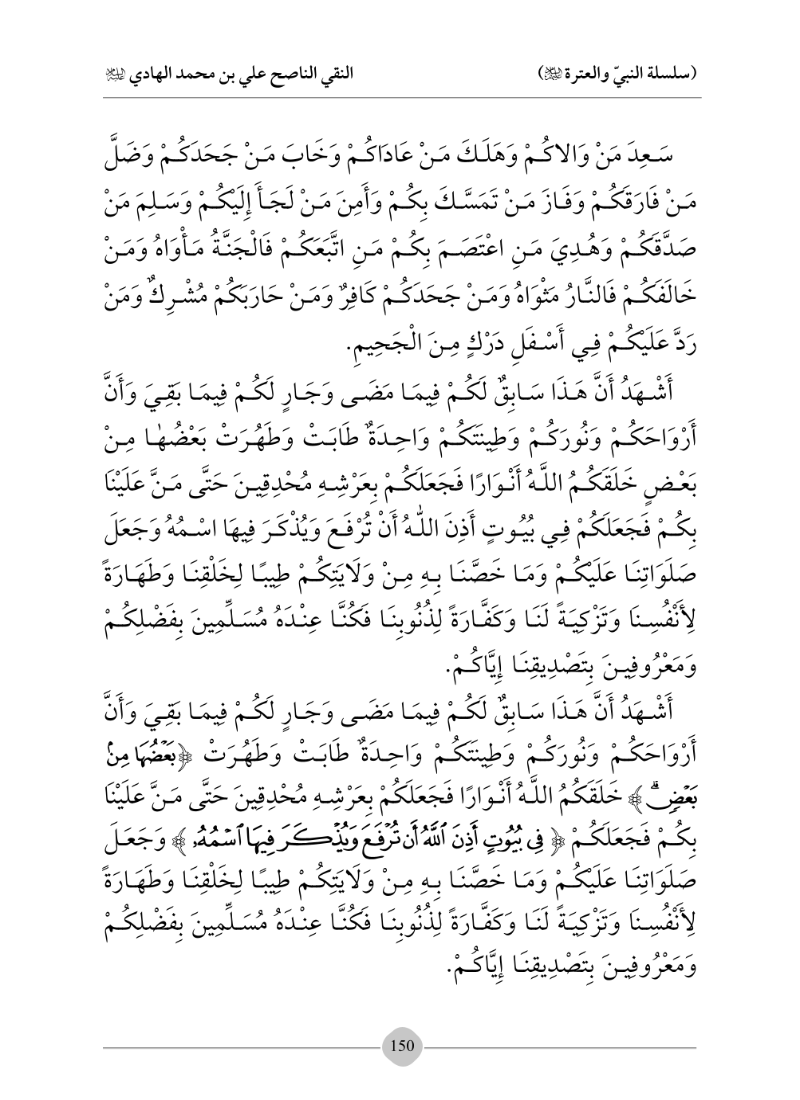 (سلسلة النبيّ والعترة ﷺ) النقي الناصح علي بن محمد الهادي ﵇
سَعِدَ مَنْ وَالاكُمْ وَهَلَكَ مَنْ عَادَاكُمْ وَخَابَ مَنْ جَحَدَكُمْ وَضَلَّ
مَنْ فَارَقَكُمْ وَفَازَ مَنْ تَمَسَّكَ بِكُمْ وَأَمِنَ مَنْ لَجَأَ إِلَيْكُمْ وَسَلِمَ مَنْ
صَدَّقَكُمْ وَهُدِيَ مَنِ اعْتَصَمَ بِكُمْ مَنِ اتَّبَعَكُمْ فَالْجَنَّةُ مَأْوَاهُ وَمَنْ
خَالَفَكُمْ فَالنَّارُ مَثْوَاهُ وَمَنْ جَحَدَكُمْ كَافِرٌ وَمَنْ حَارَبَكُمْ مُشْرِكٌ وَمَنْ
رَدَّ عَلَيْكُمْ فِي أَسْفَلِ دَرْكٍ مِنَ الْجَحِيمِ.
أَشْهَدُ أَنَّ هَذَا سَابِقٌ لَكُمْ فِيمَا مَضَى وَجَارٍ لَكُمْ فِيمَا بَقِيَ وَأَنَّ
أَرْوَاحَكُمْ وَنُورَكُمْ وَطِينَتَكُمْ وَاحِدَةٌ طَابَتْ وَطَهُرَتْ بَعْضُهٰا مِنْ
بَعْضٍ خَلَقَكُمُ اللَّهُ أَنْوَارًا فَجَعَلَكُمْ بِعَرْشِهِ مُحْدِقِينَ حَتَّى مَنَّ عَلَيْنَا
بِكُمْ فَجَعَلَكُمْ فِي بُيُوتٍ أَذِنَ اللّٰهُ أَنْ تُرْفَعَ وَيُذْكَرَ فِيهَا اسْمُهُ وَجَعَلَ
صَلَوَاتِنَا عَلَيْكُمْ وَمَا خَصَّنَا بِهِ مِنْ وَلَايَتِكُمْ طِيبًا لِخَلْقِنَا وَطَهَارَةً
لِأَنْفُسِنَا وَتَزْكِيَةً لَنَا وَكَفَّارَةً لِذُنُوبِنَا فَكُنَّا عِنْدَهُ مُسَلِّمِينَ بِفَضْلِكُمْ
وَمَعْرُوفِينَ بِتَصْدِيقِنَا إِيَّاكُمْ.
أَشْهَدُ أَنَّ هَذَا سَابِقٌ لَكُمْ فِيمَا مَضَى وَجَارٍ لَكُمْ فِيمَا بَقِيَ وَأَنَّ
أَرْوَاحَكُمْ وَنُورَكُمْ وَطِينَتَكُمْ وَاحِدَةٌ طَابَتْ وَطَهُرَتْ ﴿بَعْضُهَا مِنْ
بَعْضٍ ۗ﴾ خَلَقَكُمُ اللَّهُ أَنْوَارًا فَجَعَلَكُمْ بِعَرْشِهِ مُحْدِقِينَ حَتَّى مَنَّ عَلَيْنَا
بِكُمْ فَجَعَلَكُمْ ﴿فِي بُيُوتٍ أَذِنَ ٱللَّهُ أَن تُرْفَعَ وَيُذْكَرَ فِيهَا ٱسْمُهُۥ﴾ وَجَعَلَ
صَلَوَاتِنَا عَلَيْكُمْ وَمَا خَصَّنَا بِهِ مِنْ وَلَايَتِكُمْ طِيبًا لِخَلْقِنَا وَطَهَارَةً
لِأَنْفُسِنَا وَتَزْكِيَةً لَنَا وَكَفَّارَةً لِذُنُوبِنَا فَكُنَّا عِنْدَهُ مُسَلِّمِينَ بِفَضْلِكُمْ
وَمَعْرُوفِينَ بِتَصْدِيقِنَا إِيَّاكُمْ.
150